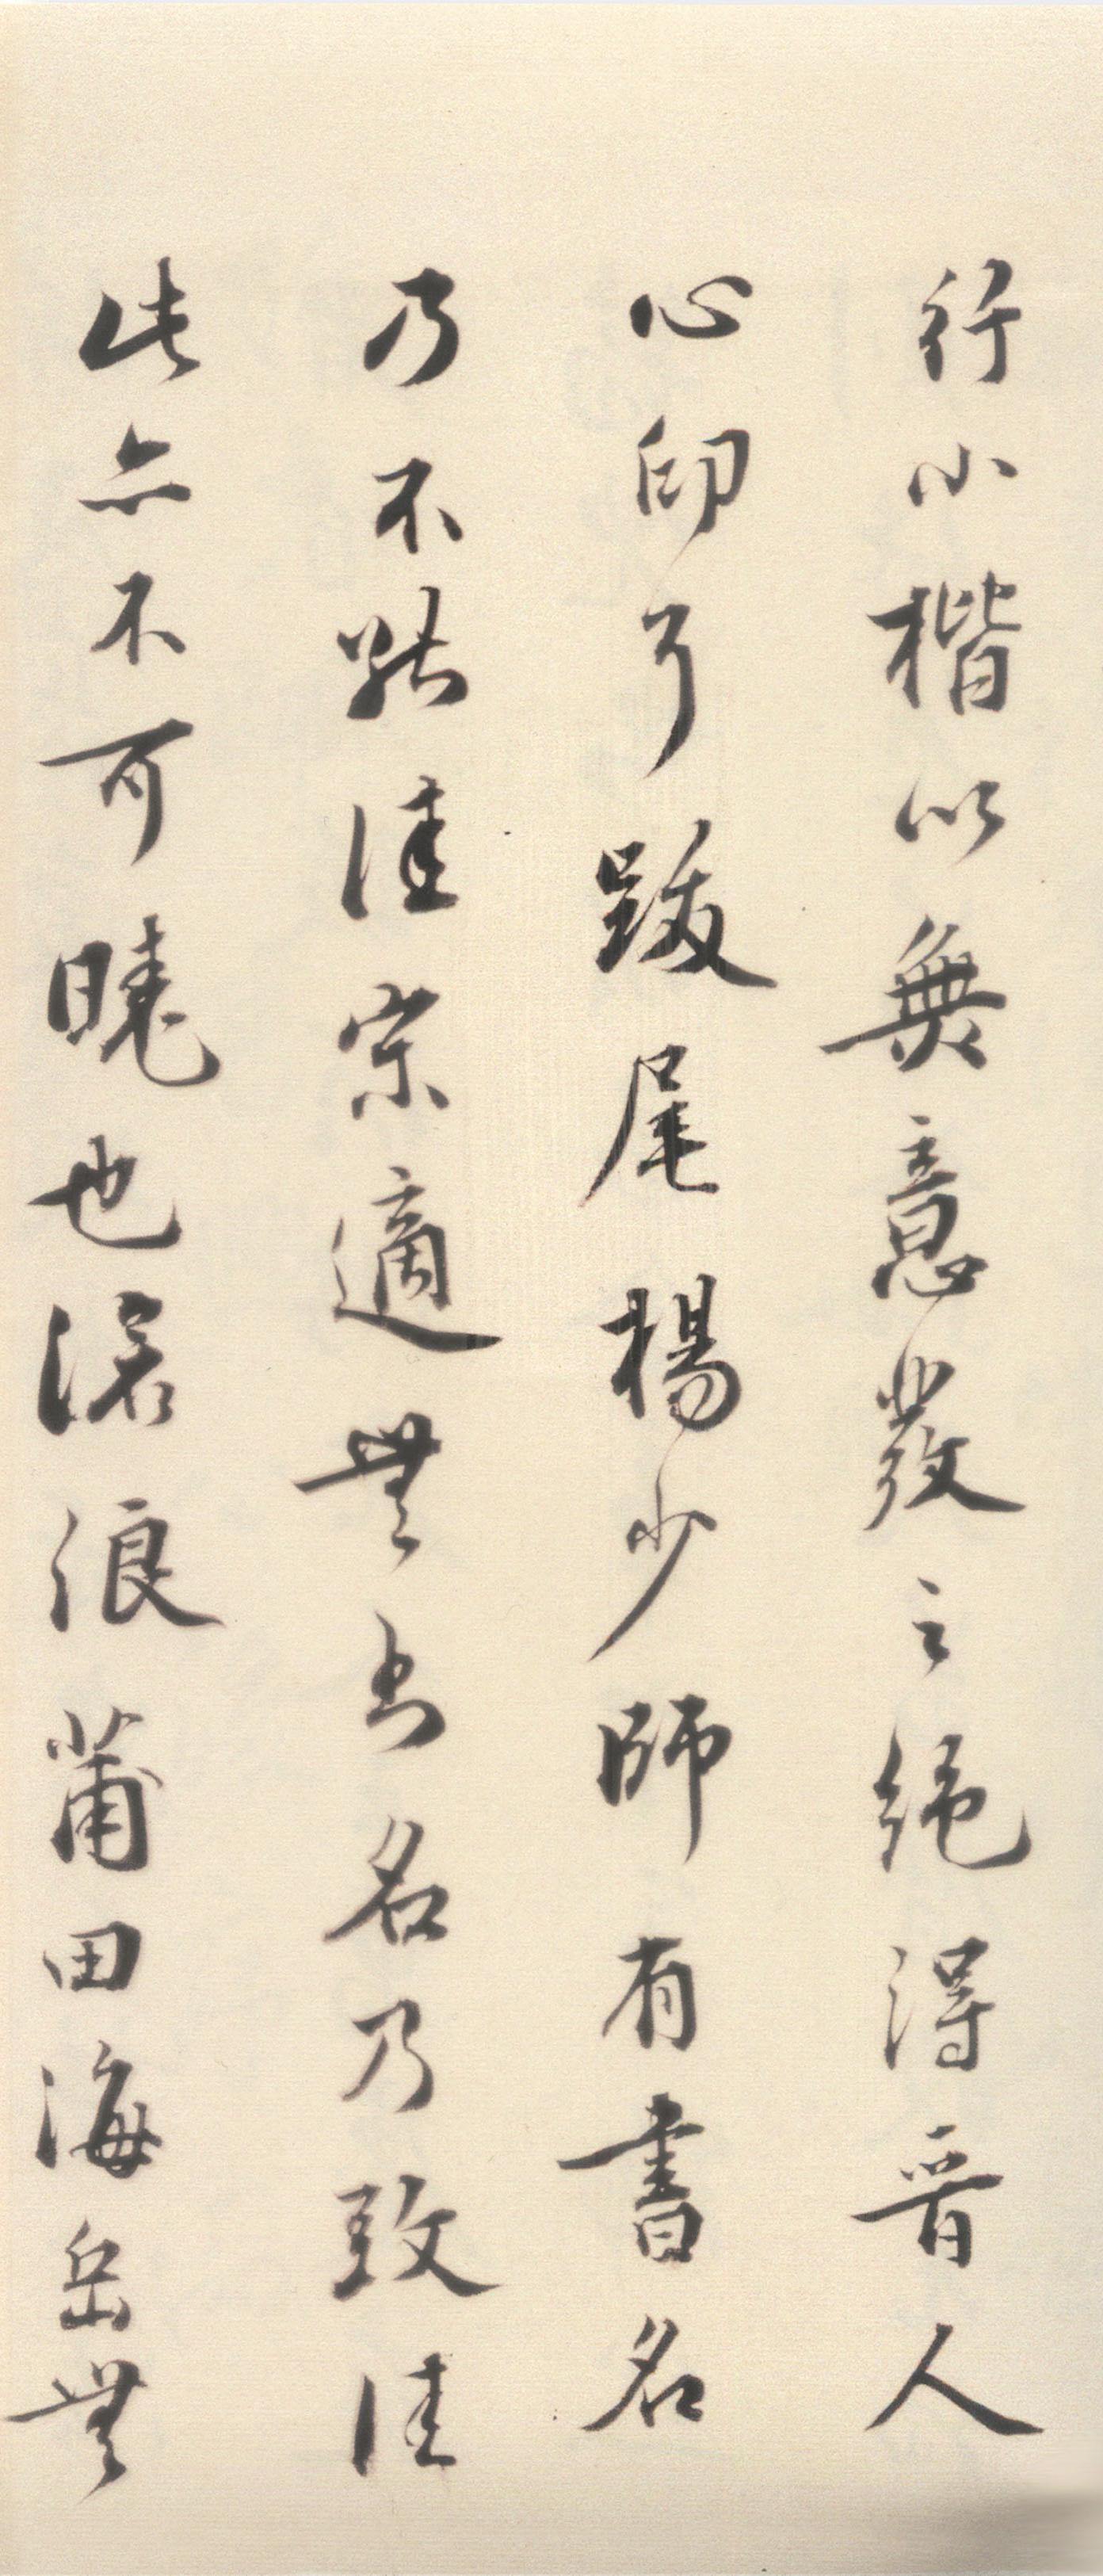 行小楷以無意發之絕得晉人
心印耳跋尾楊少師有書名
乃不能佳宗適無書名乃致佳
此亦不可曉也滄浪莆田海岳無